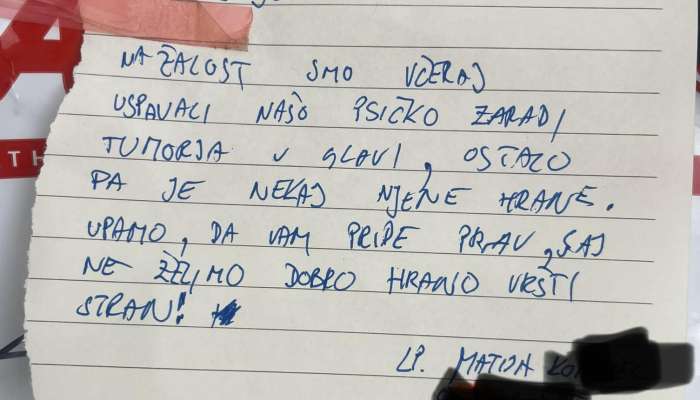 NA ŽALOST SMO VČERAJ
USPAVALI NAŠO PSIČKO ZARADI
TUMORJA V GLAVI, OSTALO
PA JE NEKAJ NJENE HRANE.
UPAMO, DA VAM PRIDE PRAV, SAJ
NE ŽELIMO DOBRO HRANO VREČTI
STRAN!
LP. MATIJA